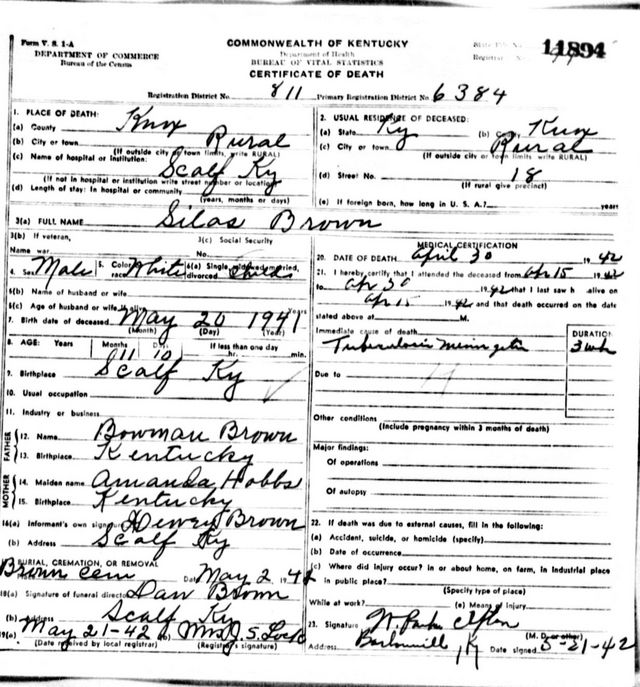 Form V. S. 1-A
DEPARTMENT OF COMMERCE
Bureau of the Census
COMMONWEALTH OF KENTUCKY
Department of Health
BUREAU OF VITAL STATISTICS
CERTIFICATE OF DEATH
State File No. 11894
Registrar
Registration District No. 811 Primary Registration District No. 6384
1. PLACE OF DEATH:
(a) County Knox
(b) City or town Rural
(If outside city or town limits, write RURAL)
(c) Name of hospital or institution: Scalf Ky
(If not in hospital or institution write street number or location)
(d) Length of stay: In hospital or community
(years, months or days)
2. USUAL RESIDENCE OF DECEASED:
(a) State Ky (b) County Knox
(c) City or town Rural
(If outside city or town limits write RURAL)
(d) Street No. 18
(If rural give precinct)
(e) If foreign born, how long in U. S. A.? years
3(a) FULL NAME Silas Brown
3(b) If veteran,
Name war
3(c) Social Security
No.
4. Sex Male 5. Color or race White 6(a) Single, widowed, married, divorced Child
6(b) Name of husband or wife
6(c) Age of husband or wife if alive years
7. Birth date of deceased May 20 1941
(Month) (Day) (Year)
8. AGE: Years Months Days If less than one day
11 10 hr. min.
9. Birthplace Scalf Ky
10. Usual occupation
11. Industry or business
FATHER
12. Name Bowman Brown
13. Birthplace Kentucky
MOTHER
14. Maiden name Amanda Hobbs
15. Birthplace Kentucky
16(a) Informant's own signature Dewey Brown
(b) Address Scalf Ky
BURIAL, CREMATION, OR REMOVAL
Brown Cem Date May 2 1942
18(a) Signature of funeral director Dan Brown
(b) Address Scalf Ky
19(a) May 21-42 (b) Mrs J. S. Lock
(Date received by local registrar) (Registrar's signature)
MEDICAL CERTIFICATION
20. DATE OF DEATH April 30 1942
21. I hereby certify that I attended the deceased from Apr 15 1942
to Apr 30 1942 that I last saw h alive on
Apr 15 1942 and that death occurred on the date
stated above at M.
Immediate cause of death
Tuberculosis Meningitis
DURATION
3 wk
Due to
Other conditions
(Include pregnancy within 3 months of death)
Major findings:
Of operations
Of autopsy
22. If death was due to external causes, fill in the following:
(a) Accident, suicide, or homicide (specify)
(b) Date of occurrence
(c) Where did injury occur? in or about home, on farm, in industrial place
in public place?
(Specify type of place)
While at work? (e) Means of injury
23. Signature
(M. D. or other)
Address Barbourville Ky Date signed 5-21-42